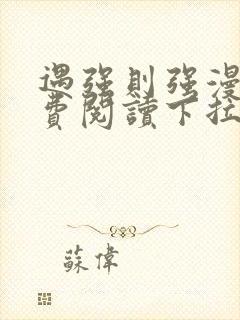 遇強則強漫
費閱讀下拉
蘇偉